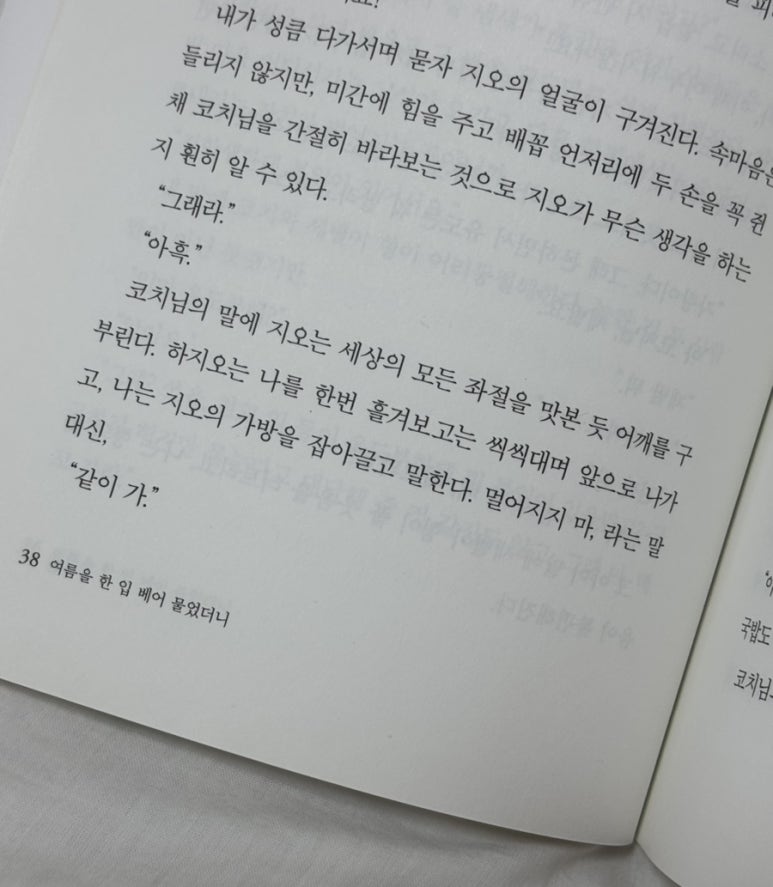 내가 성큼 다가서며 묻자 지오의 얼굴이 구겨진다. 속마음은
들리지 않지만, 미간에 힘을 주고 배꼽 언저리에 두 손을 꼭 쥔
채 코치님을 간절히 바라보는 것으로 지오가 무슨 생각을 하는
지 훤히 알 수 있다.
“그래라.”
“아흑.”
코치님의 말에 지오는 세상의 모든 좌절을 맛본 듯 어깨를 구
부린다. 하지오는 나를 한번 흘겨보고는 씩씩대며 앞으로 나가
고, 나는 지오의 가방을 잡아끌고 말한다. 멀어지지 마, 라는 말
대신,
“같이 가.”
38 여름을 한 입 베어 물었더니
국밥도
코치님